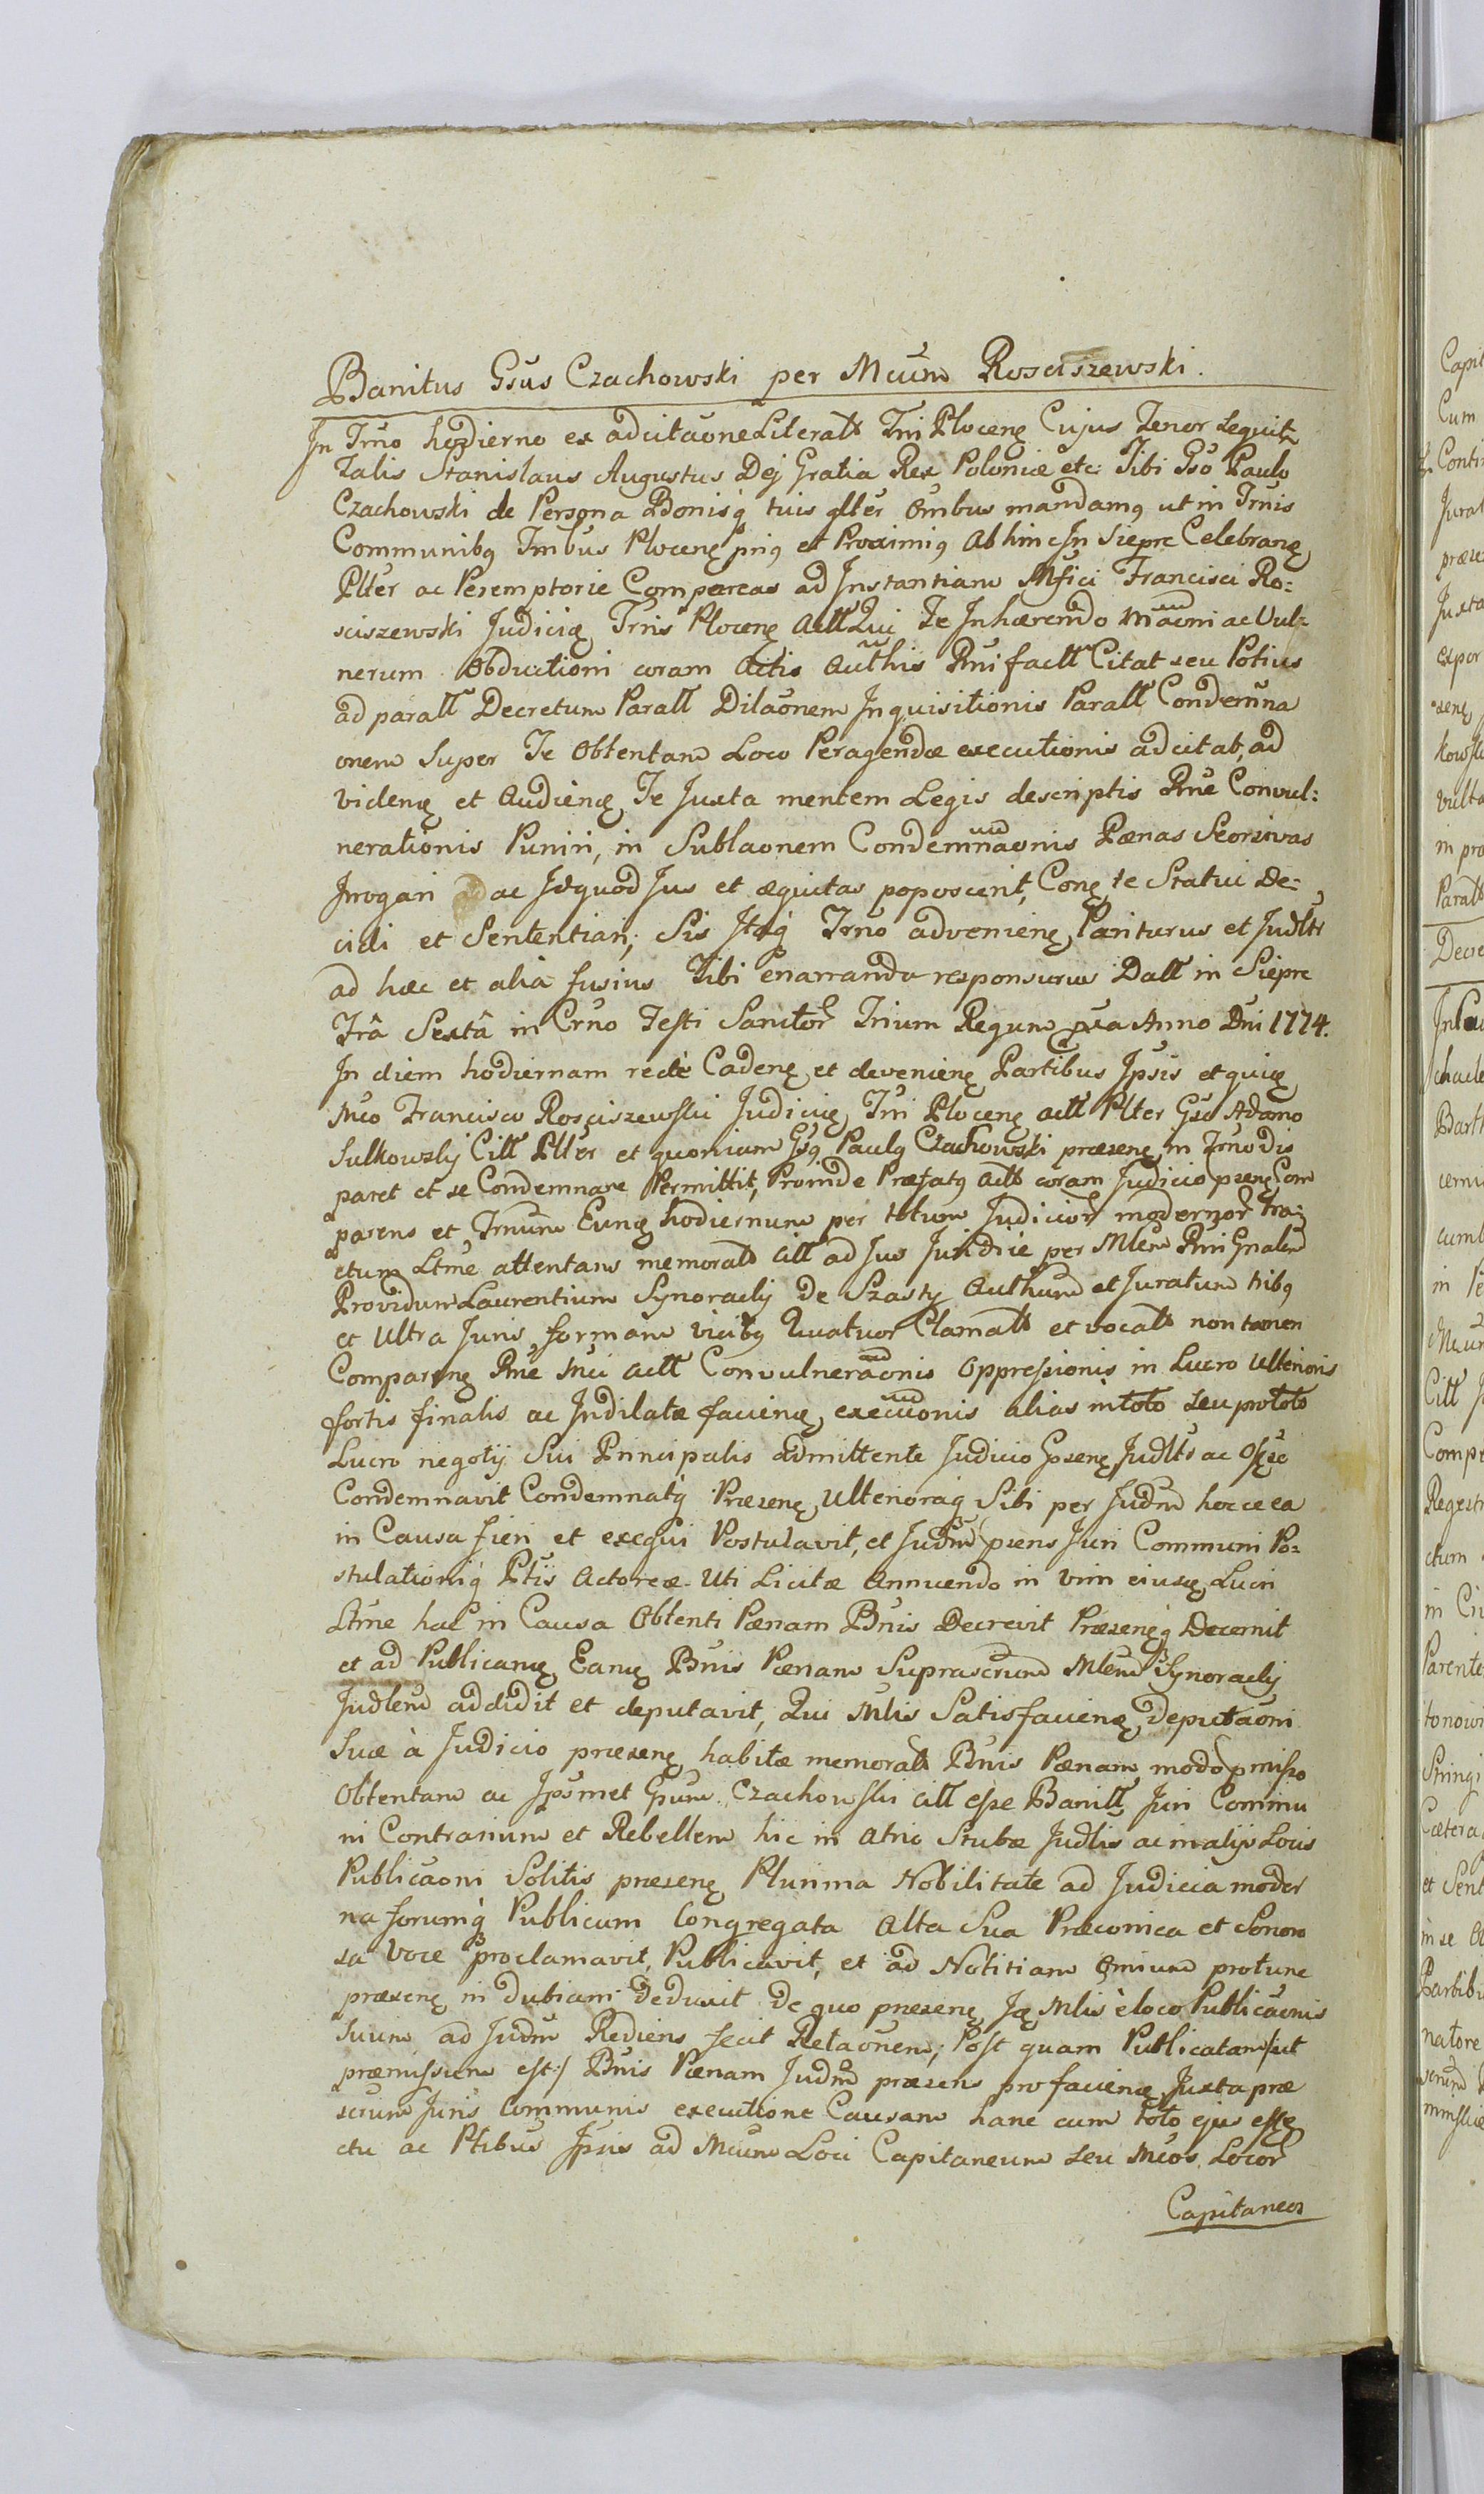 Banitus Gsus Czachowski per Mcum Rosciszewski.
In Trno hodierno ex adcitaone Literali Trri Plocens Cujus Tenor sequitr
Talis Stanislaus Augustus Dej Gratia Rex Poloniæ etc: Tibi Gso Paulo
Czachowski de Persona Bonisq tuis gller Ombus mandamq ut in Trnis
Communibq Trribus Plocens priq et Proximiq Abhinc In Sieprc Celebrans
Plter ac Peremptorie Compareas ad Instantiam Mfici Francisci Ro=
sciszewski Judicis Trris Plocens Actt Qui Te Inhærendo Maoni ac Vul=
nerum Obductioni coram Actis Authis Pmi factt Citat seu Potius
ad paratt Decretum Paratt Dilaonem Inquisitionis Paratt Condemna
onem Super Te Obtentam Loco Peragendæ executionis adcitat, ad
videns et Audiens Te Juxta mentem Legis descriptis Pne Convul:
nerationis Puniri, in Sublaonem Condemnaonis Pænas Seorsivas
Irrogari ac Idquod Jus et æquitas poposcerit, Cons te Statui De=
cidi et Sententiari; Sis Itaq Trno adveniens Pariturus et Judltr
ad hæc et alia fusius Tibi enarranda responsurus Datt in Sieprc
Frâ Sextâ in Crno Festi Sanctor Trium Regum pxa Anno Dni 1774.
In diem hodiernam recte Cadens et deveniens Partibus Ipsis etquis
Mco Francisco Rosciszewski Judicis Trri Plocens actt Plter Gso Adamo
Sulkowskj Citt Plter et quoniam Gsq Paulq Czachowski præsens in Trno dis
paret et se Condemnare Permittit, Proinde Præfatq Actt coram Judicio præns Com
parens et Trnum Eunds hodiernum per totum Judicior modernor tra=
ctum Ltme attentans memoratt citt ad Jus Juridice per Mlem Rni Gnalem
Providum Laurentium Synoracky De Szasty Authum et Juratum tribq
et Ultra Juris formam vicibq Quatuor Clamatt et vocatt non tamen
Comparens Pne Mci actt Convulneraonis Oppressionis in Lucro Ulterioris
fortis finalis ac Indilatæ faciens execuonis alias intoto seu prototo
Lucro negotij Sui Principalis admittente Judicio præns Judltr ac
Condemnavit Condemnatq Præsens Ulterioraq Sibi per Judm hocce ea
in Causa fieri et exequi Postulavit, et Judm prens Juri Communi Po=
stulationiq Ptis Actoreæ Uti Licitæ Annuendo in vim eiusd Lucri
Ltme hac in Causa Obtenti Pænam Bnis Decrevit Præsensq Decernit
et ad Publicans Eands Bnis Pænam Suprascrum Mlem Synoracky
Judlem addidit et deputavit, Qui Mlis Satisfaciens Deputaoni
Suæ à Judicio præsens habitæ memoratt Bnis Pænam modo pmisso
Obtentam ac Ipsmet Gsum Czachowski citt esse Banitt Juri Commu
ni Contrarium et Rebellem hic in atrio Stubæ Judlis ac in alijs Locis
Publicaoni Solitis præsens Plurima Nobilitate ad Judicia moder
na forumq Publicum Congregata Alta Sua Præconica et Sonoro
sa Voce proclamavit, Publicavit, et ad Notitiam Omium protunc
præsens in dubiam deduxit De quo præsens Is Mlis è loco Publicaonis
Suum ad Judm Rediens fecit Relaonem; Post quam Publicatam /ut
præmissum est:/ Bnis Pænam Judm præsens pro faciens Juxta præ
scrum Juris Communis executione Causam hanc cum toto ejus effe
ctu ac Ptibus Ipsis ad Mcum Loci Capitaneum seu Mcos Locor
Capitaneos